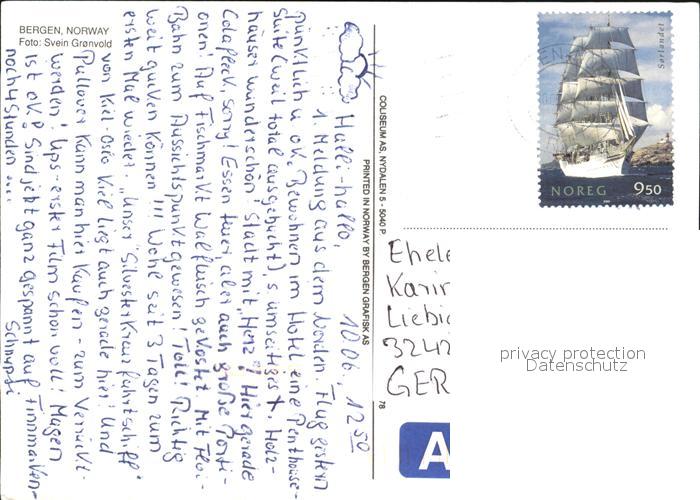 BERGEN, NORWAY
Foto: Svein Grønvold
Halli-hallo, 10.06., 12⁵⁰
1. Meldung aus dem Norden. Flug gestern
pünktlich u. ok. Bewohnen im Hotel eine Penthouse-
suite (weil total ausgebucht), s. umseitiges x. Holz-
häuser wunderschön! Stadt mit "Herz"! Hier gerade
Colapleck, sorry! Essen teuer, aber auch große Porti-
onen! Auf Fischmarkt Walfleisch gekostet. Mit Flöi-
Bahn zum Aussichtspunkt gewesen! Toll! Richtig
weit gucken können!!! Wehe seit 3 Tagen zum
ersten Mal wieder. "Unser" Silvesterkreuzfahrtschiff
von Kiel-Oslo Kiel liegt auch gerade hier! Und
Pullover kann man hier kaufen - zum Verrückt-
werden! Ups - erster Film schon voll! Magen
ist ok! Sind jetzt ganz gespannt auf Finnmarken-
noch 4 Stunden ....
Schnupsi
COLISEUM AS, NYDALEN 5 - 5040 P
PRINTED IN NORWAY BY BERGEN GRAFISK AS
78
Sørlandet
NOREG 9⁵⁰
Ehele
Karin
Liebig
3242
GER
A
privacy protection
Datenschutz